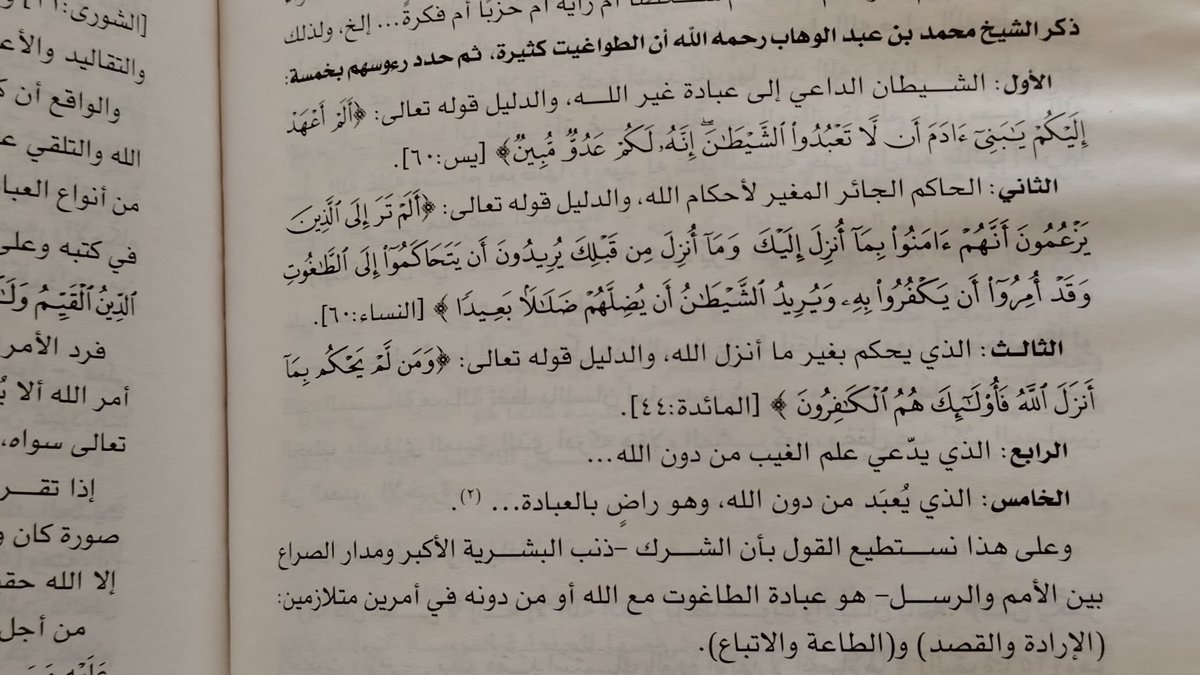 أم راية أم حزبًا أم فكرة... إلخ، ولذلك
ذكر الشيخ محمد بن عبد الوهاب رحمه الله أن الطواغيت كثيرة، ثم حدد رءوسهم بخمسة:
الأول: الشيطان الداعي إلى عبادة غير الله، والدليل قوله تعالى: ﴿أَلَمْ أَعْهَدْ
إِلَيْكُمْ يَٰبَنِىٓ ءَادَمَ أَن لَّا تَعْبُدُوا۟ ٱلشَّيْطَٰنَ ۖ إِنَّهُۥ لَكُمْ عَدُوٌّ مُّبِينٌ﴾ [يس:٦٠].
الثاني: الحاكم الجائر المغير لأحكام الله، والدليل قوله تعالى: ﴿أَلَمْ تَرَ إِلَى ٱلَّذِينَ
يَزْعُمُونَ أَنَّهُمْ ءَامَنُوا۟ بِمَآ أُنزِلَ إِلَيْكَ وَمَآ أُنزِلَ مِن قَبْلِكَ يُرِيدُونَ أَن يَتَحَاكَمُوٓا۟ إِلَى ٱلطَّٰغُوتِ
وَقَدْ أُمِرُوٓا۟ أَن يَكْفُرُوا۟ بِهِۦ وَيُرِيدُ ٱلشَّيْطَٰنُ أَن يُضِلَّهُمْ ضَلَٰلًۢا بَعِيدًا﴾ [النساء:٦٠].
الثالث: الذي يحكم بغير ما أنزل الله، والدليل قوله تعالى: ﴿وَمَن لَّمْ يَحْكُم بِمَآ
أَنزَلَ ٱللَّهُ فَأُو۟لَٰٓئِكَ هُمُ ٱلْكَٰفِرُونَ﴾ [المائدة:٤٤].
الرابع: الذي يدّعي علم الغيب من دون الله...
الخامس: الذي يُعبَد من دون الله، وهو راضٍ بالعبادة... (٢).
وعلى هذا نستطيع القول بأن الشرك -ذنب البشرية الأكبر ومدار الصراع
بين الأمم والرسل- هو عبادة الطاغوت مع الله أو من دونه في أمرين متلازمين:
(الإرادة والقصد) و(الطاعة والاتباع).
والتقاليد
والواقع أن
الله والتلقي
من أنواع
في كتبه وعلى
ٱلدِّينُ ٱلْقَيِّمُ
فرد الأمر
أمر الله ألا
تعالى سواه،
إذا
صورة كان
إلا الله
من أجل